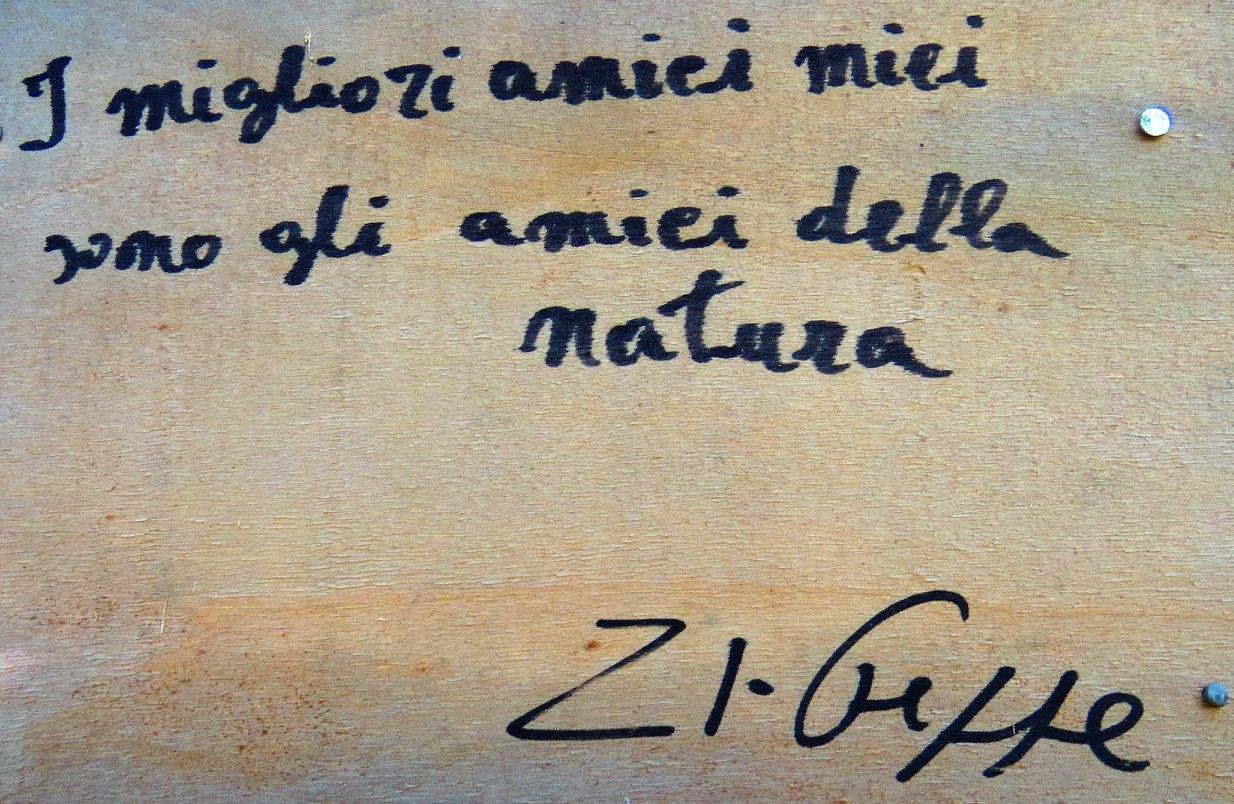 I migliori amici miei
sono gli amici della
natura
ZI.